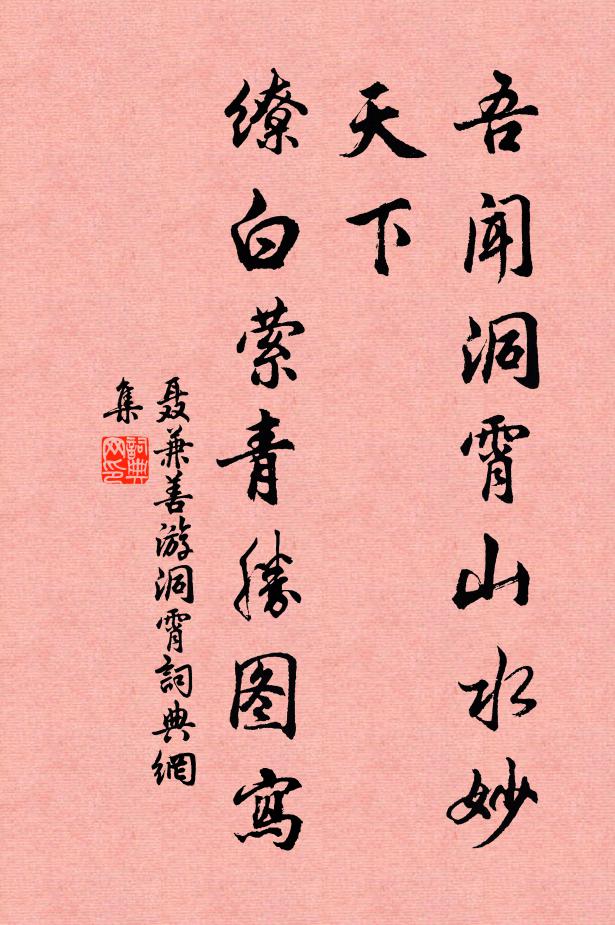 吾闻洞霄山水妙
天下
缭白萦青胜图寫
聂兼善游洞霄詞典網
集
詞典網印